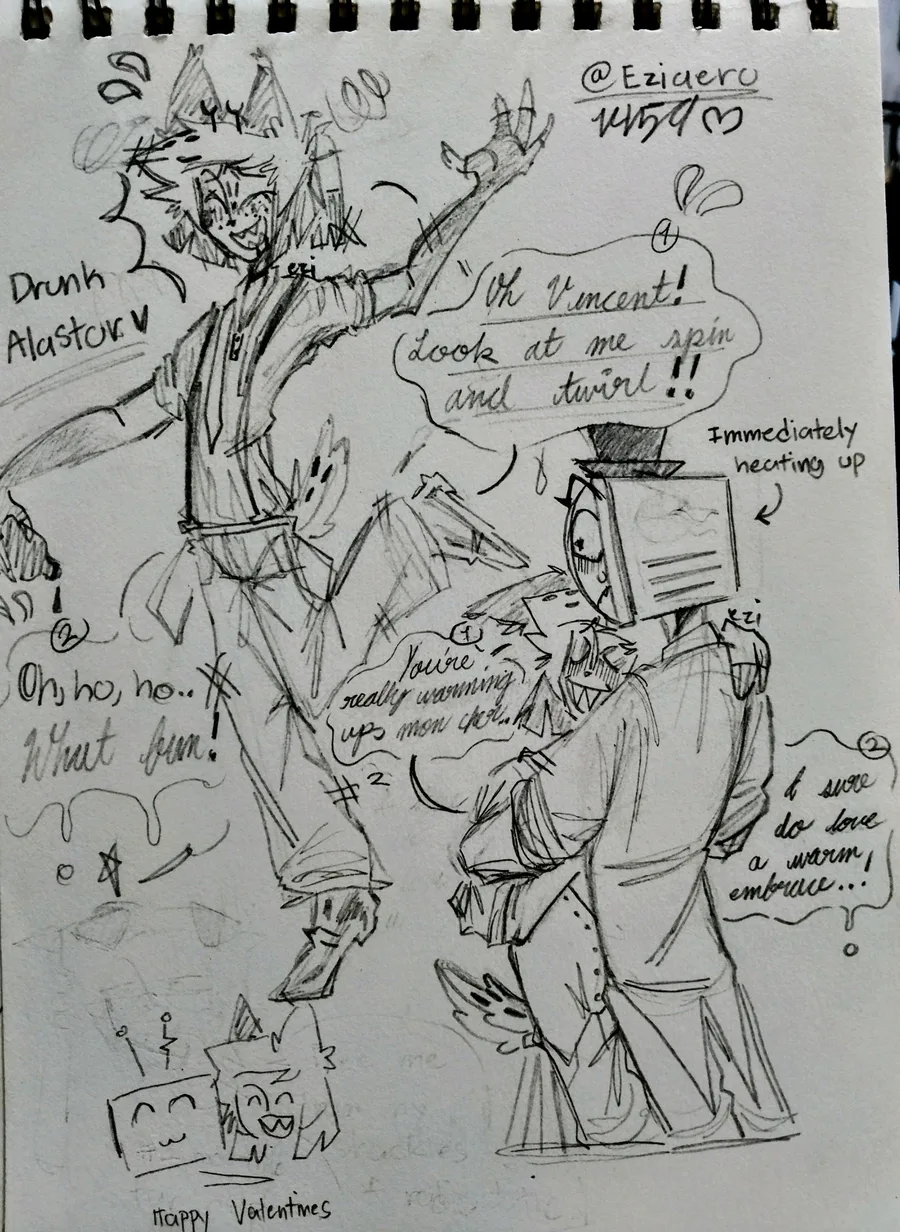 @Eziaero
Drunk
Alastor
ezi
1
Oh Vincent!
Look at me spin
and twirl!!
Immediately
heating up
2
Oh, ho, ho..
What fun!
ezi
1
You're
really warming
up, mon cher..
2
I sure
do love
a warm
embrace...!
Happy Valentines